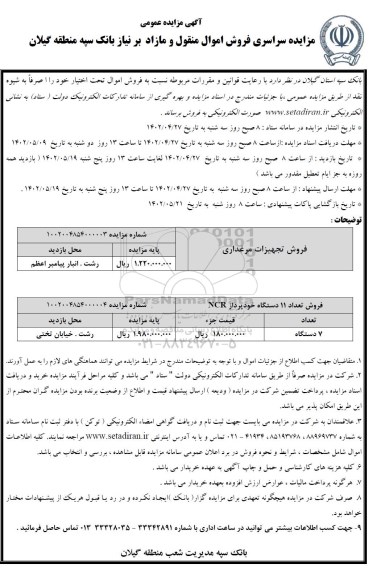 آگهی مزایده عمومی
مزایده سراسری فروش اموال منقول و مازاد بر نیاز بانک سپه منطقه گیلان
بانک سپه استان گیلان در نظر دارد با رعایت قوانین و مقررات مربوطه نسبت به فروش اموال تحت اختیار خود را صرفاً به شیوه
نقد از طریق مزایده عمومی ،با جزئیات مندرج در اسناد مزایده و بهره گیری از سامانه تدارکات الکترونیک دولت ( ستاد) به نشانی
الکترونیکی www.setadiran.ir صورت الکترونیکی به فروش برساند .
* تاریخ انتشار مزایده در سامانه ستاد : ۸ صبح روز سه شنبه به تاریخ ۱۴۰۲/۰۴/۲۷
* مهلت دریافت اسناد مزایده :ازساعت ۸ صبح روز سه شنبه به تاریخ ۱۴۰۲/۰۴/۲۷ تا ساعت ۱۳ روز دو شنبه به تاریخ ۱۴۰۲/۰۵/۰۹
* تاریخ بازدید : از ساعت ۸ صبح روز سه شنبه به تاریخ ۱۴۰۲/۰۴/۲۷ لغایت ساعت ۱۳ روز پنج شنبه ۱۴۰۲/۰۵/۱۹ ( بازدید همه
روزه به جز ایام تعطیل مقدور می باشد )
* مهلت ارسال پیشنهاد : از ساعت ۸ صبح روز سه شنبه به تاریخ ۱۴۰۲/۰۴/۲۷ تا ساعت ۱۳ روز پنج شنبه به تاریخ ۱۴۰۲/۰۵/۱۹ .
* تاریخ بازگشایی پاکات پیشنهادی : ساعت ۸ روز شنبه به تاریخ ۱۴۰۲/۰۵/۲۱
توضیحات :
فروش تجهیزات مرغداری
شماره مزایده ۱۰۰۲۰۰۴۸۵۴۰۰۰۰۰۳
پایه مزایده محل بازدید
۱.۲۲۰.۰۰۰.۰۰۰ ریال رشت . انبار پیامبر اعظم
فروش تعداد ۱۱ دستگاه خودپرداز NCR شماره مزایده ۱۰۰۲۰۰۴۸۵۴۰۰۰۰۰۴
تعداد قیمت جزء پایه مزایده محل بازدید
۷ دستگاه ۱۸۰.۰۰۰.۰۰۰ ریال ۱.۹۸۰.۰۰۰.۰۰۰ ریال رشت . خیابان تختی
ParsNamadData
۰۲۱-۸۸۳۴۹۶۷۰-۵
۱. متقاضیان جهت کسب اطلاع از جزئیات اموال و با توجه به توضیحات مندرج در شرایط مزایده می توانند هماهنگی های لازم را به عمل آورند.
۲. شرکت در مزایده صرفاً از طریق سامانه تدارکات الکترونیکی دولت " ستاد " می باشد و کلیه مراحل فرآیند مزایده خرید و دریافت
اسناد مزایده ، پرداخت تضمین شرکت در مزایده ( ودیعه ) ارسال پیشنهاد قیمت و اطلاع از وضعیت برنده بودن مزایده گران محترم از
این طریق امکان پذیر می باشد.
۳. علاقمندان به شرکت در مزایده می بایست جهت ثبت نام و دریافت گواهی امضاء الکترونیکی ( توکن ) با دفتر ثبت نام سامانه ستاد
به شماره ۸۸۹۶۹۷۳۷، ۸۵۱۹۳۷۶۸، ۴۱۹۳۴ - ۰۲۱ تماس و یا به آدرس اینترنتی www.setadiran.ir مراجعه نمایند. کلیه اطلاعات
اموال شامل مشخصات ، شرایط و نحوه فروش در برد اعلان عمومی سامانه مزایده قابل مشاهده ، بررسی و انتخاب می باشد.
۶ کلیه هزینه های کارشناسی و حمل و چاپ آگهی به عهده خریدار می باشد .
۷. هرگونه پرداخت مالیات ، عوارض ارزش افزوده بعهده خریدار می باشد .
۸. صرف شرکت در مزایده هیچگونه تعهدی برای مزایده گزار( بانک )ایجاد نکرده و در رد یا قبول هریک از پیشنهادات مختار
خواهد بود.
۹- جهت کسب اطلاعات بیشتر می توانید در ساعت اداری با شماره ۳۳۳۶۲۸۹۱ - ۳۳۳۲۸۰۳۵ ۰۱۳ تماس حاصل فرمائید .
بانک سپه مدیریت شعب منطقه گیلان